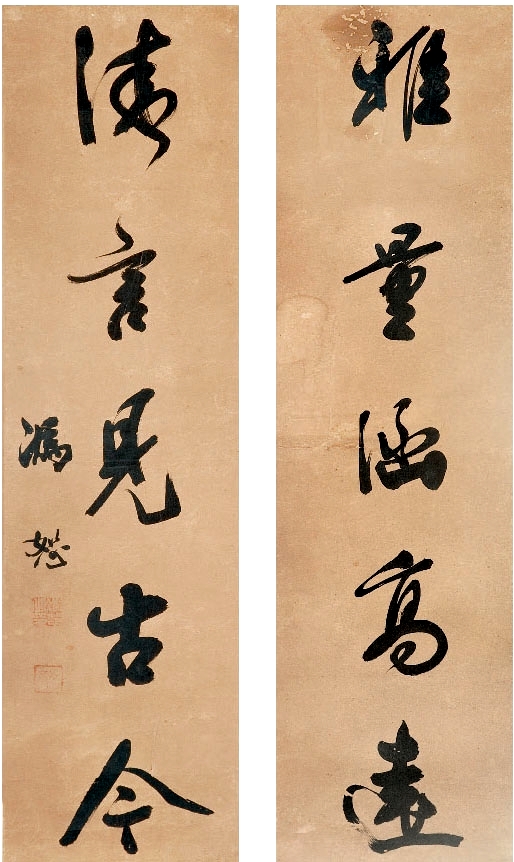 雅量涵高遠
清言見古今
馮恕